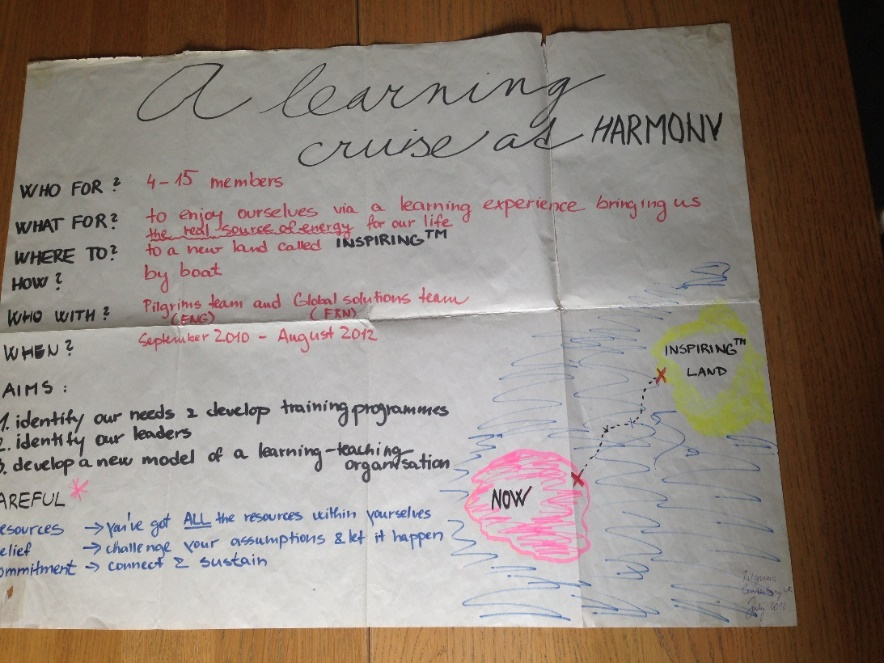 A learning
cruise at HARMONY
WHO FOR? 4-15 members
WHAT FOR? to enjoy ourselves via a learning experience bringing us
the real source of energy for our life
WHERE TO? to a new land called INSPIRING™
HOW? by boat
WHO WITH? Pilgrims team and Global solutions team
(ENG) (FXN)
WHEN? September 2010 - August 2012
AIMS:
1. identify our needs & develop training programmes
2. identify our leaders
3. develop a new model of a learning-teaching
organisation
AREFUL *
esources → you've got ALL the resources within yourselves
elief → challenge your assumptions & let it happen
ommitment → connect & sustain
INSPIRING™
LAND
NOW
Pilgrims
July